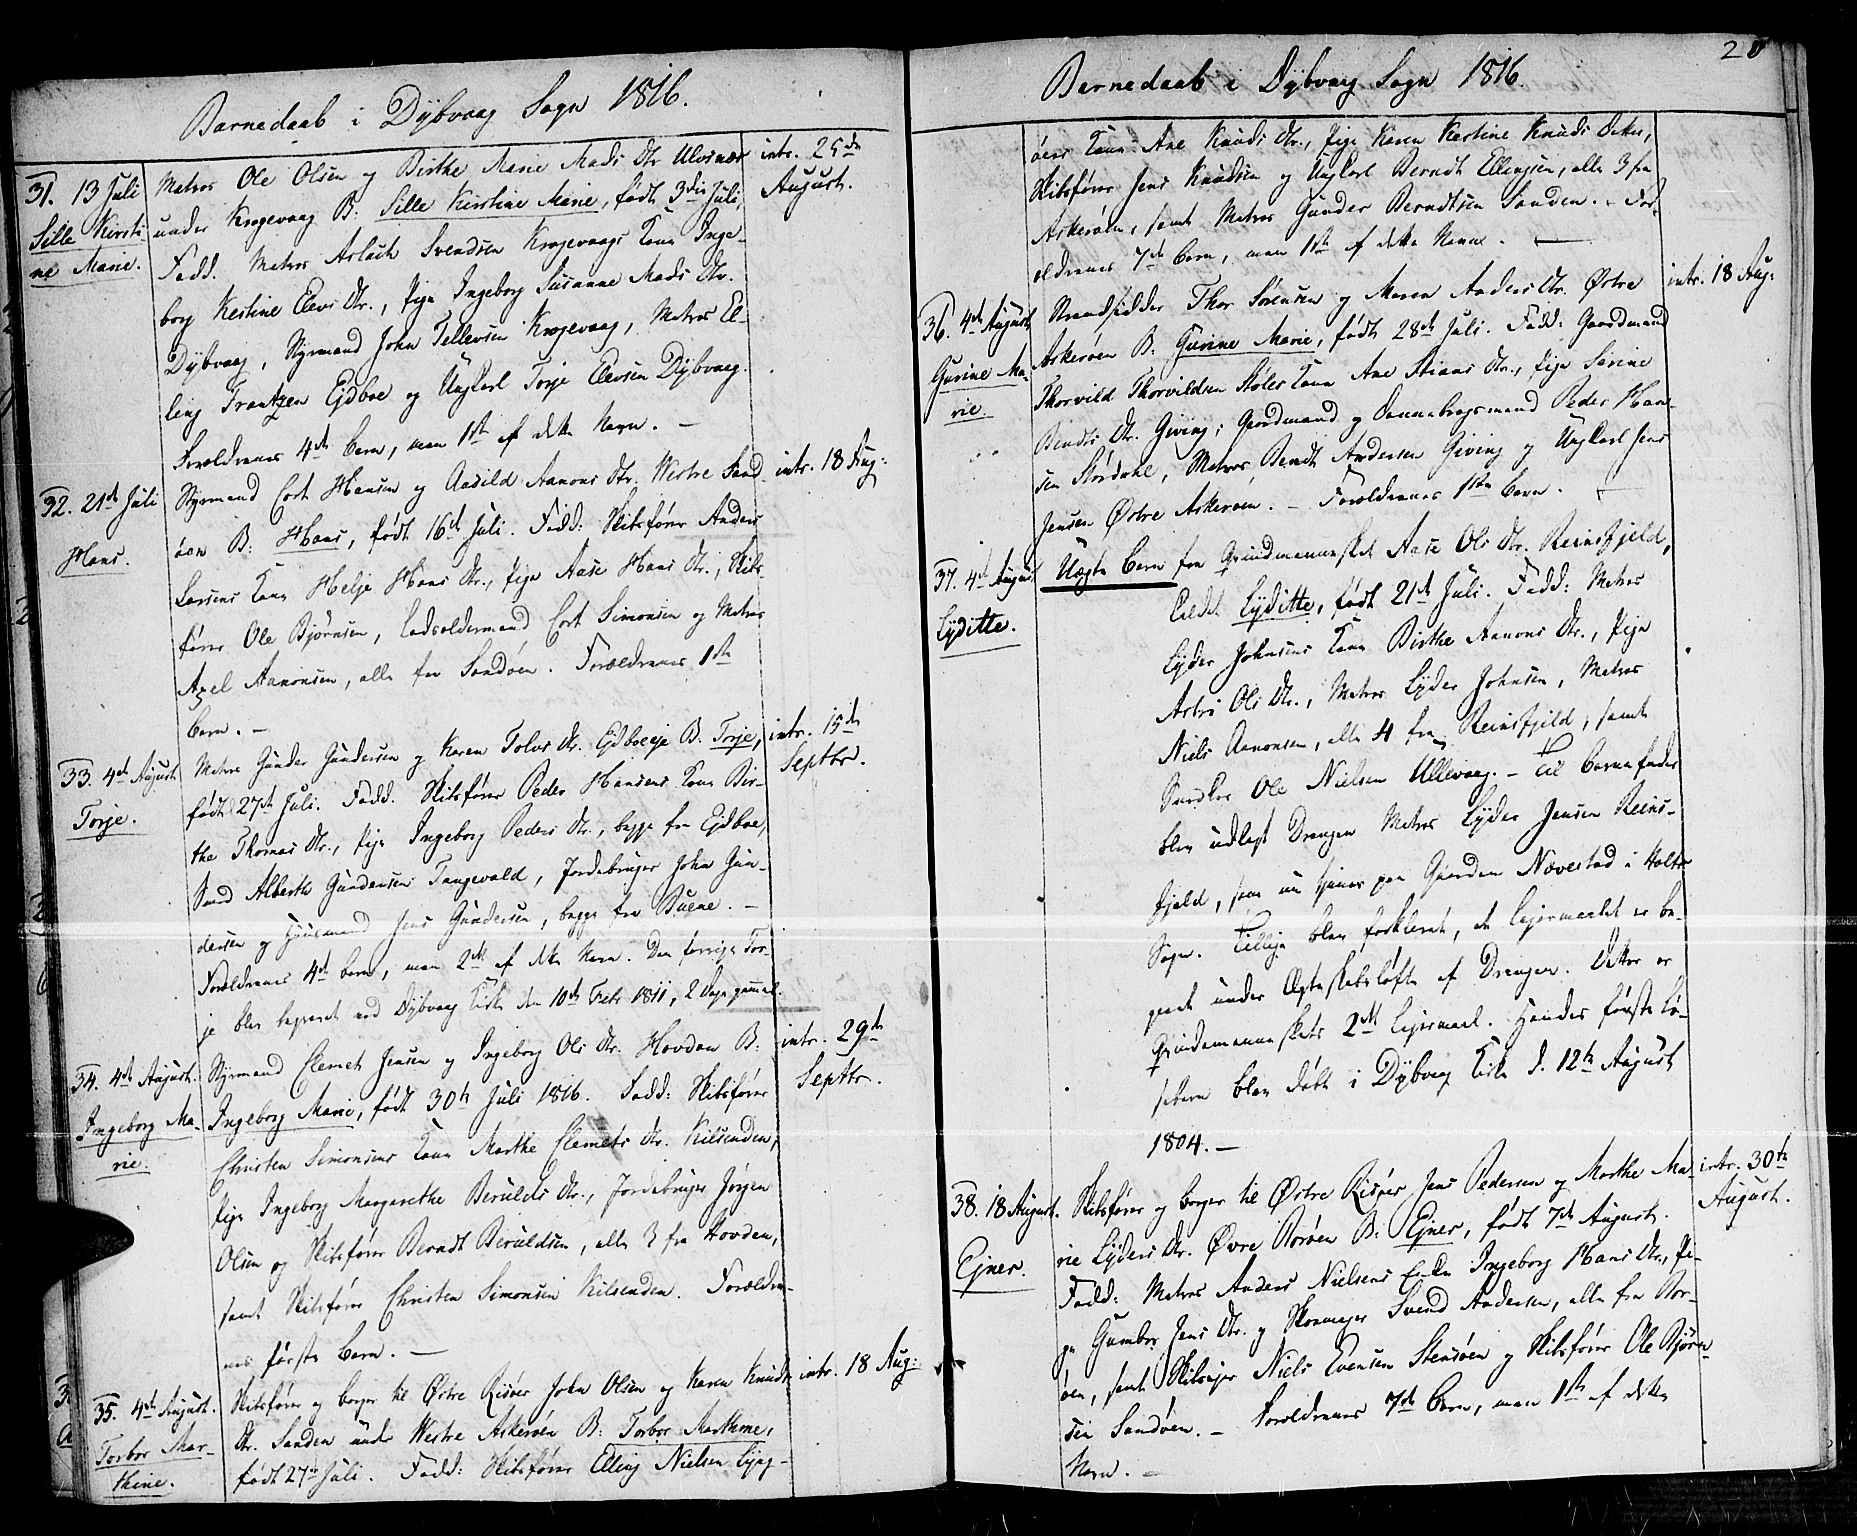 Barnedaab i Dÿbvaag Sogn 1816.
31. 13 Juli
Sille Kirsti-
ne Marie.
Matros Ole Olsen og Birthe Marie Mads Dtr. Ulvsnæs
under Krogevaag B: Sille Kirstine Marie, født 3die Juli,
Fadd. Matros Aslach Svendsen Krogevaags Kone Inge-
borg Kestine Elevs Dtr., Pige Ingeborg Susanne Mads Dtr.
Dÿbvaag, Styrmand John Tellevsen Krogevaag, Matros El-
ling Frantzen Ejdboe og Ungkarl Torje Elevsen Dÿbvaag.
Forældrenes 4de Barn, men 1ste af dette Navn. –
intr. 25de
August.
32. 21de Juli
Hans.
Styrmand Cort Hansen og Aasild Aanons Dtr. Westre Sand-
øen B: Hans, født 16d Juli. Fadd: Skibsfører Anders
Larsens Kone Helje Hans Dtr., Pige Aase Hans Dtr., Skibs-
fører Ole Bjørnsen, Lodsoldermand Cort Simonsen og Matros
Axel Aanonsen, alle fra Sandøen. Forældrenes 1ste
Barn. –
intr. 18 Aug:
33. 4de August
Torje.
Matros Gunder Gundersen og Karen Tolvs Dtr. Ejdboeeje B. Torje,
født 27de Juli. Fadd. Skibsfører Peder Hansens Kone Bir-
the Thomas Dtr., Pige Ingeborg Peders Dtr., begge fra Ejdboe,
Smed Alberth Gundersen Tangevald, Jordebruger John Gun-
dersen og Huusmand Jens Gundersen, begge fra Buene. –
Forældrenes 4de Barn, men 2det af dette Navn. Den forrige Tor-
je blev begravet ved Dÿbvaag Kirke den 10de Febr 1811, 2 Dage gammel.
intr. 15de
Septbr.
34. 4de August.
Ingeborg Ma-
rie.
Styrmand Clemet Jensen og Ingeborg Ols Dtr. Hovden B:
Ingeborg Marie, født 30te Juli 1816. Fadd: Skibsfører
Christen Simonsens Kone Marthe Clemets Dtr. Kilsenden,
Pige Ingeborg Margarethe Berulds Dtr., Jordebruger Jørgen
Olsen og Skibsfører Berndt Beruldsen, alle 3 fra Hovden,
samt Skibsfører Christen Simonsen Kilsenden. Forældre-
nes første Barn. –
intr. 29de
Septbr.
35. 4de August.
Torbor Mar-
thine.
Skibsfører og borger til Østre Risøer John Olsen og Karen Knuds
Dtr. Sanden under Westre Askerøen B: Torbor Marthine,
født 27de Juli. Fadd: Skibsfører Elling Nielsen Lÿng-
intr. 18 Aug:
Barnedaab i Dÿbvaag Sogn 1816.
20
øens Kone Ane Knuds Dtr., Pige Karen Kestine Knuds Datter,
Skibsfører Jens Knudsen og Ungkarl Berndt Ellingsen, alle 3 fra
Askerøen, samt Matros Gunder Berndtsen Sanden. – For-
ældrenes 7de Barn, men 1ste af dette Navn. –
36. 4de August
Gurine Ma-
rie.
Strandsidder Thor Sørensen og Maren Anders Dtr. Østre
Askerøen B: Gurine Marie, født 28de Juli. Fadd: Gaardmand
Thorvild Thorvildsen Støles Kone Ane Stians Dtr., Pige Serine
Bendts Dtr. Giving, Gaardmand og Dannebrogsmand Peder Han-
sen Størdahl, Matros Bendt Andersen Giving og Ungkarl Jens
Jensen Østre Askerøen. – Forældrenes 1ste Barn. –
intr. 18 Aug:
37. 4de August
Lÿditte.
Uægte Barn fra Qvindemennesket Aase Ols Dtr. Reinsfjeld,
kaldet Lÿditte, født 21de Juli. Fadd: Matros
Lÿder Johnsens Kone Birthe Aanons Dtr., Pige
Astri Ols Dtr., Matros Lÿder Johnsen, Matros
Niels Aanonsen, alle 4 fra Reinsfjeld, samt
Ole Nielsen Ullevaag. – Til Barnefader
blev udlagt Drengen Matros Lÿder Jensen Reins-
fjeld, som nu tjener paa Gaarden Nævestad i Holts
Sogn. Tillige blev forklaret, at Lejermaalet er be-
gaaet under Ægteskabsløfte af Drengen. Dette er
Qvindemenneskets 2det Lejermaal. Hendes første Lø-
sebarn blev døbt i Dÿbvaag Kirke d. 12te August
1804. –
38. 18 August.
Ejner.
Skibsfører og borger til Østre Risøer Jens Pedersen og Marthe Ma-
rie Lÿders Dtr. Øvre Borøen B: Ejner, født 7de August.
Fadd: Matros Anders Nielsens Enke Ingeborg Hans Dtr., Pi-
ge Gumbor Jens Dtr. og Skomager Svend Andersen, alle fra Bor-
øen, samt Skibsejer Niels Evensen Stensøen og Skibsfører Ole Bjørn-
sen Sandøen. – Forældrenes 7de Barn, men 1ste af dette
Navn. –
intr. 30te
August.